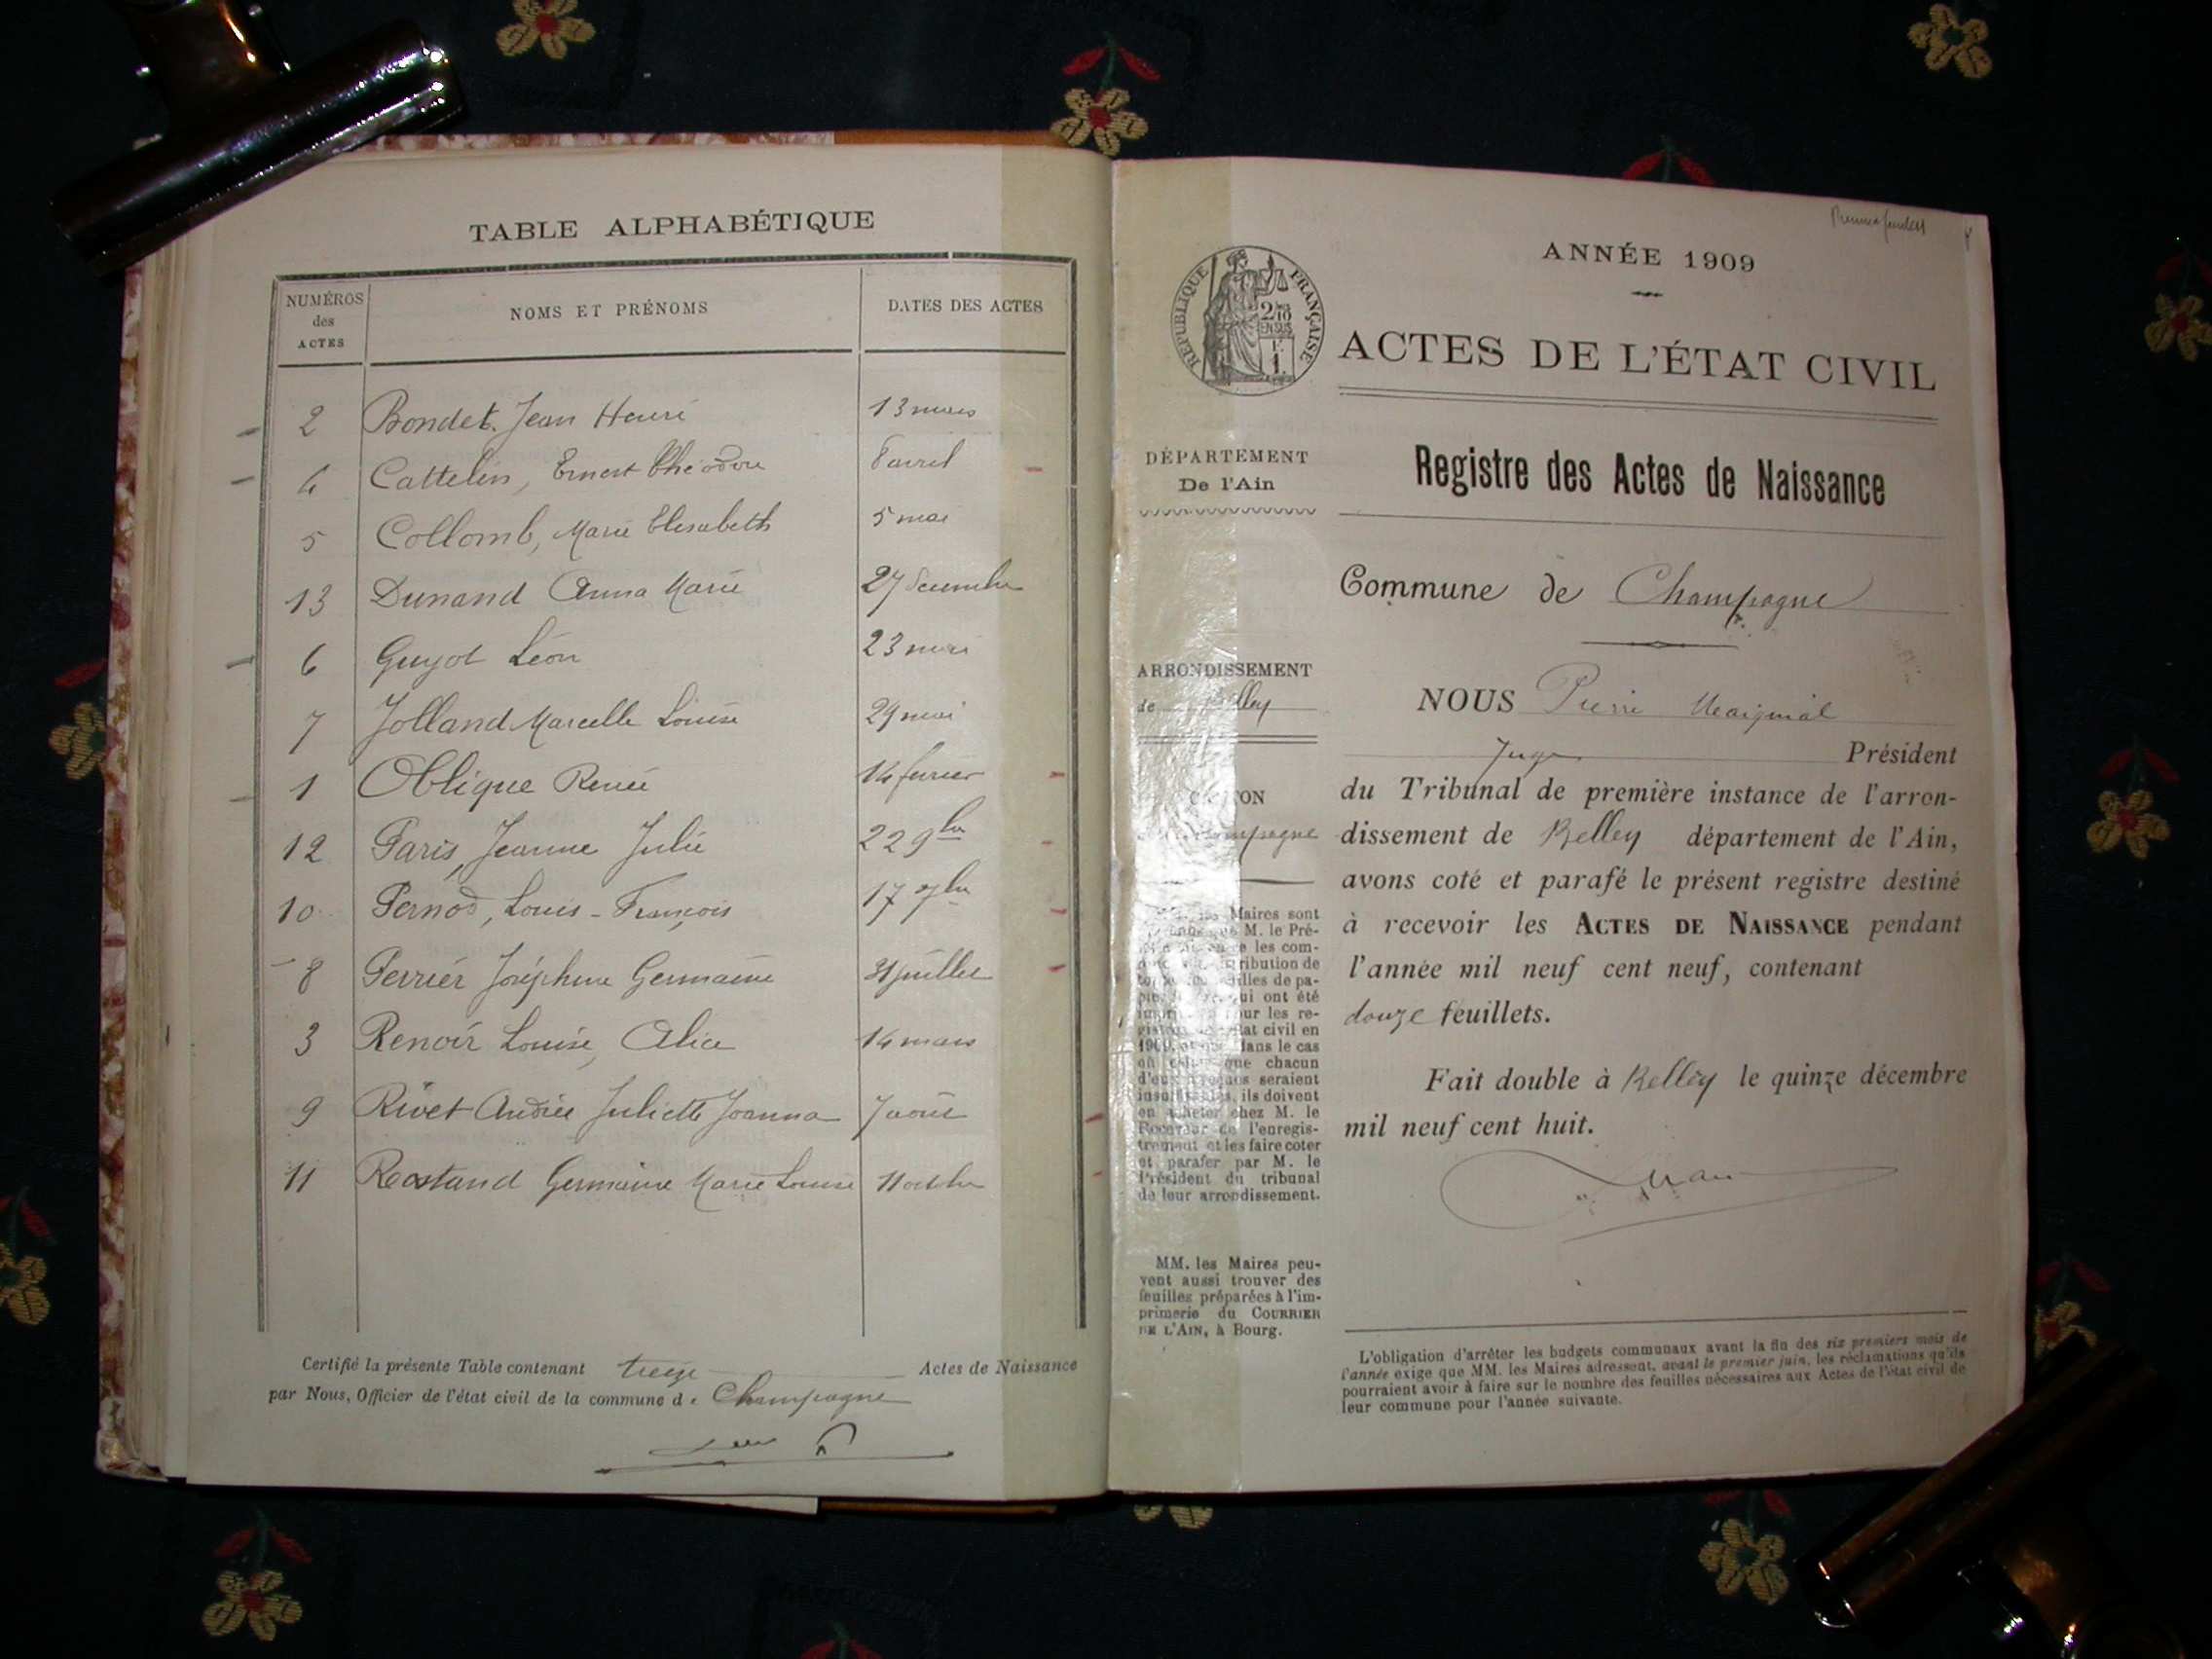 TABLE ALPHABÉTIQUE
NUMÉROS des ACTES
NOMS ET PRÉNOMS
DATES DES ACTES
2 Bondet Jean Henri 13 mars
4 Cattelin, Ernest Théodore 8 avril
5 Collomb, Marie Elisabeth 5 mai
13 Dunand Anna Marie 27 décembre
6 Guyot Léon 23 mai
7 Jolland Marcelle Louise 29 mai
1 Oblique Renée 14 février
12 Paris, Jeanne Julie 22 9bre
10 Pernod, Louis-François 17 7bre
8 Perrier Joséphine Germaine 31 juillet
3 Renoir Louise, Alice 14 mars
9 Rivet Andrée Juliette Joanna 7 août
11 Rostand Germaine Marie Louise 11 octobre
Certifié la présente Table contenant treize Actes de Naissance
par Nous, Officier de l'état civil de la commune de Champagne
ANNÉE 1909
RÉPUBLIQUE FRANÇAISE
2/10
EN SUS
1
ACTES DE L'ÉTAT CIVIL
DÉPARTEMENT
De l'Ain
Registre des Actes de Naissance
Commune de Champagne
ARRONDISSEMENT
de Belley
CANTON
Champagne
Maires sont
M. le Pré-
les com-
tribution de
feuilles de pa-
qui ont été
pour les re-
état civil en
1909, dans le cas
où que chacun
d'eux seraient
insuffisantes, ils doivent
en acheter chez M. le
Receveur de l'enregis-
trement et les faire coter
et parafer par M. le
Président du tribunal
de leur arrondissement.
MM. les Maires peu-
vent aussi trouver des
feuilles préparées à l'im-
primerie du COURRIER
DE L'AIN, à Bourg.
NOUS Pierre
Juge Président
du Tribunal de première instance de l'arron-
dissement de Belley département de l'Ain,
avons coté et parafé le présent registre destiné
à recevoir les ACTES DE NAISSANCE pendant
l'année mil neuf cent neuf, contenant
douze feuillets.
Fait double à Belley le quinze décembre
mil neuf cent huit.
L'obligation d'arrêter les budgets communaux avant la fin des six premiers mois de
l'année exige que MM. les Maires adressent, avant le premier juin, les réclamations qu'ils
pourraient avoir à faire sur le nombre des feuilles nécessaires aux Actes de l'état civil de
leur commune pour l'année suivante.